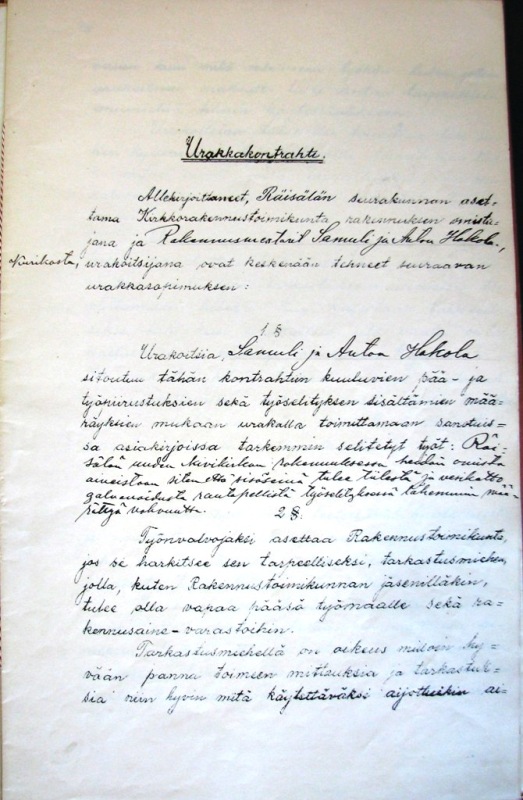 Urakkakontrahti.
Allekirjoittaneet, Räisälän seurakunnan aset-
tama Kirkkorakennustoimikunta rakennuksen omista-
jana ja Rakennusmestarit Samuli ja Anton Hakola,
Kurikasta, urakoitsijana ovat keskenään tehneet seuraavan
urakkasopimuksen:
1 §
Urakoitsia, Samuli ja Anton Hakola
sitoutuu tähän kontrahtiin kuuluvien pää- ja
työpiirustuksien sekä työselityksen sisältämien mää-
räyksien mukaan urakalla toimittamaan sanotuis-
sa asiakirjoissa tarkemmin selitetyt työt: Räi-
sälän uuden kivikirkon rakennuksessa heidän omista
aineistaan siten että sisöseinä tulee tiilestä ja vesikatto
galvanoidusta rautapellistä työselityksessä lähemmin mää-
rättyä vahvuutta.
2 §.
Työnvalvojaksi asettaa Rakennustoimikunta,
jos se harkitsee sen tarpeelliseksi, tarkastusmiehen,
jolla, kuten Rakennustoimikunnan jäsenilläkin,
tulee olla vapaa pääsö työmaalle sekä ra-
kennusaine-varastoihin.
Tarkastusmiehellä on oikeus milloin hy-
vään panna toimeen mittauksia ja tarkastuk-
sia niin hyvin mitä käytettäväksi aijottuihin ai-